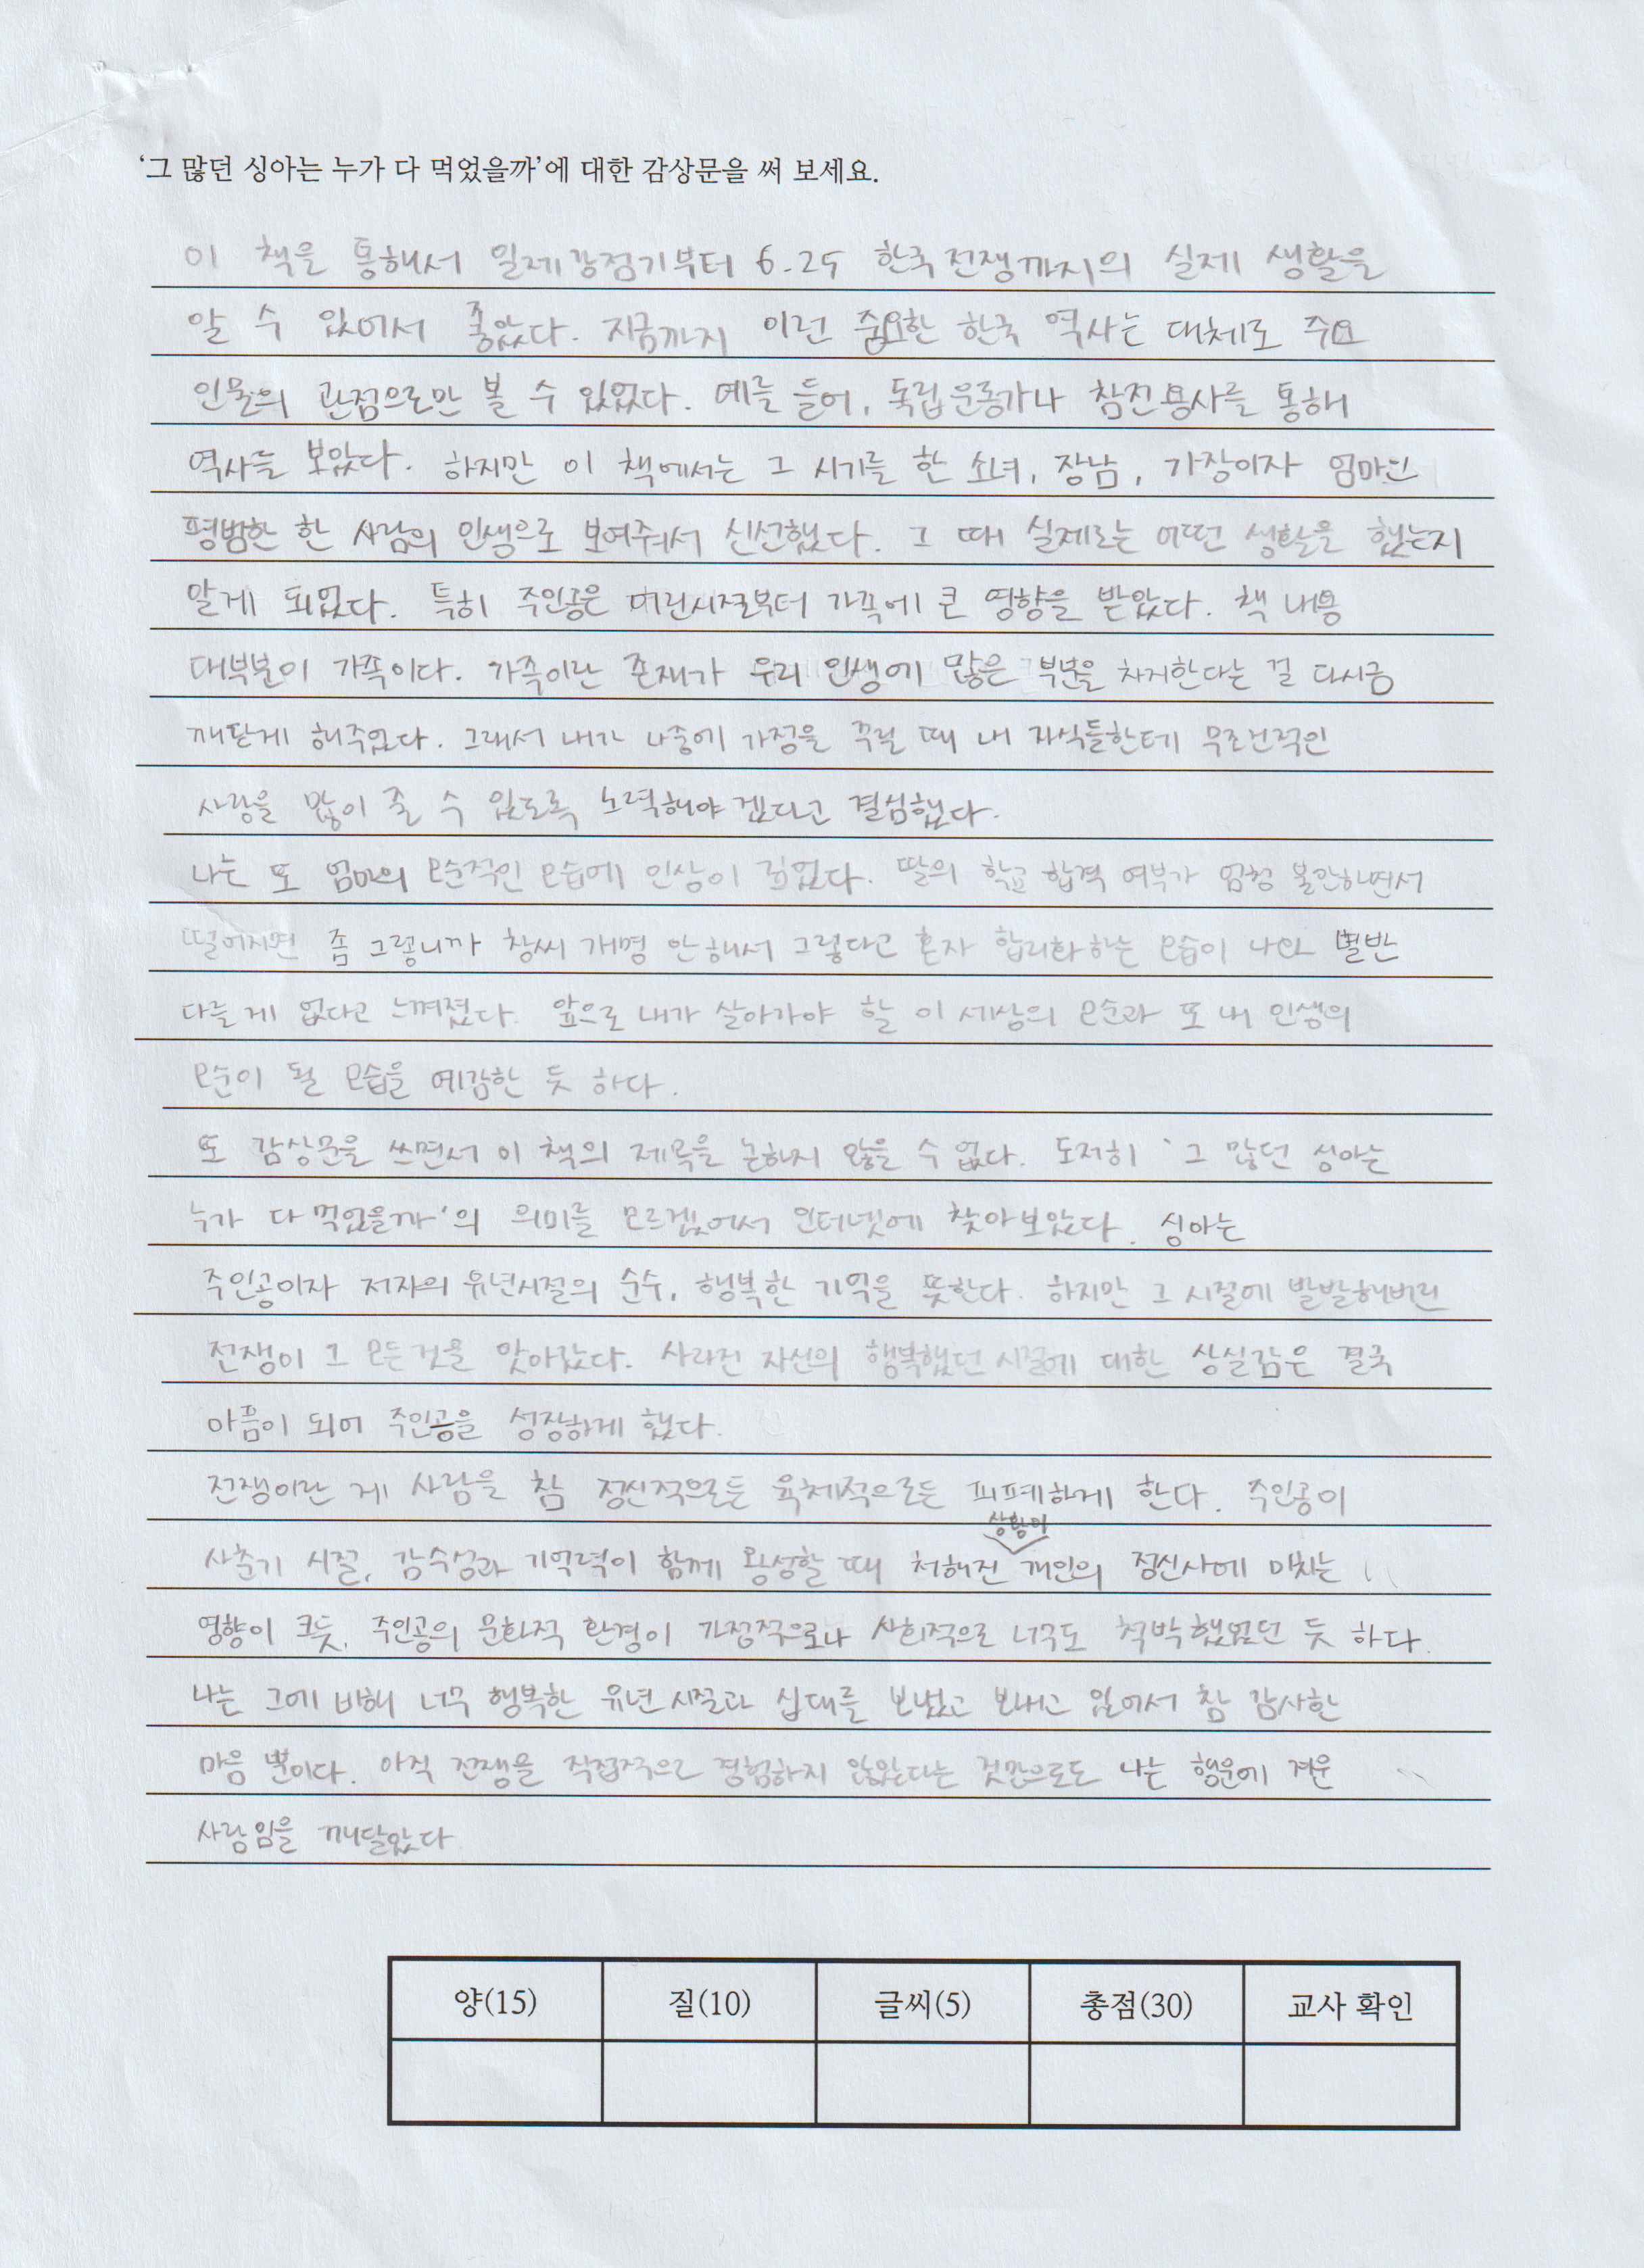 '그 많던 싱아는 누가 다 먹었을까'에 대한 감상문을 써 보세요.
이 책을 통해서 일제강점기부터 6.25 한국전쟁까지의 실제 생활을
알 수 있어서 좋았다. 지금까지 이런 중요한 한국 역사는 대체로 주요
인물의 관점으로만 볼 수 있었다. 예를 들어, 독립운동가나 참전용사를 통해
역사를 보았다. 하지만 이 책에서는 그 시기를 한 소녀, 장남, 가장이자 엄마인
평범한 한 사람의 인생으로 보여줘서 신선했다. 그 때 실제로는 어떤 생활을 했는지
알게 되었다. 특히 주인공은 어린시절부터 가족에 큰 영향을 받았다. 책 내용
대부분이 가족이다. 가족이란 존재가 우리 인생에 많은 부분을 차지한다는 걸 다시금
깨닫게 해주었다. 그래서 내가 나중에 가정을 꾸릴 때 내 자식들한테 무조건적인
사랑을 많이 줄 수 있도록 노력해야겠다고 결심했다.
나는 또 엄마의 모순적인 모습에 인상이 깊었다. 딸의 학교 합격 여부가 엄청 불안하면서
떨어지면 좀 그렇니까 창씨 개명 안해서 그렇다고 혼자 합리화하는 모습이 나와 별반
다를 게 없다고 느껴졌다. 앞으로 내가 살아가야 할 이 세상의 모순과 또 내 인생의
모순이 될 모습을 예감한 듯 하다.
또 감상문을 쓰면서 이 책의 제목을 논하지 않을 수 없다. 도저히 '그 많던 싱아는
누가 다 먹었을까'의 의미를 모르겠어서 인터넷에 찾아보았다. 싱아는
주인공이자 저자의 유년시절의 순수, 행복한 기억을 뜻한다. 하지만 그 시절에 발발해버린
전쟁이 그 모든것을 앗아갔다. 사라진 자신의 행복했던 시절에 대한 상실감은 결국
아픔이 되어 주인공을 성장하게 했다.
전쟁이란 게 사람을 참 정신적으로든 육체적으로든 피폐하게 한다. 주인공이
상황이
사춘기 시절, 감수성과 기억력이 함께 왕성할 때 처해진 개인의 정신사에 미치는
영향이 크듯, 주인공의 문화적 환경이 가정적으로나 사회적으로 너무도 척박했었던 듯 하다.
나는 그에 비해 너무 행복한 유년 시절과 십대를 보냈고 보내고 있어서 참 감사한
마음 뿐이다. 아직 전쟁을 직접적으로 경험하지 않았다는 것만으로도 나는 행운에 겨운
사람임을 깨달았다.
양(15) 질(10) 글씨(5) 총점(30) 교사 확인